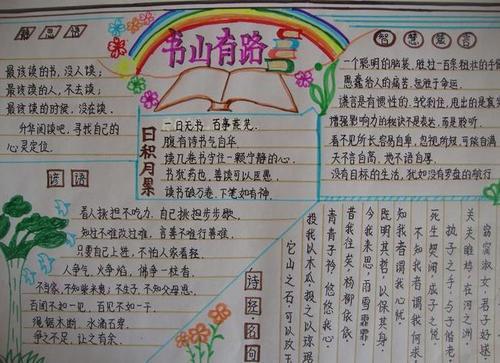 书山有路
静思语
最该读的书,没人读;
最该读的人,不去读;
最该读的时候,没在读.
升华阅读吧,寻找自己的
心灵定位.
日积月累
一日无书 百事荒芜.
腹有诗书气自华
读几卷书守住一颗宁静的心.
书犹药也,善读可以医愚.
读书破万卷,下笔如有神.
智慧箴言
一个聪明的脑袋,胜过一百条粗壮的
愚蠢给人的痛苦,甚于命运.
谎言是有惯性的,
增强影响力的秘诀不是表达,而是聆听.
看不见所长容易自卑,忽视所短,可能自满
天不言自高,地不语自厚.
没有目标的生活,犹如没有罗盘的航行
谚语
看人挑担不吃力,自己挑担步步歇.
知过不难改过难,言善不难行善难.
只要自己上进,不怕人家看轻.
人争气,火争焰,佛争一柱香.
不当家,不知柴米贵;不生子,不知父母恩.
百闻不如一见,百见不如一干.
绳锯木断,水滴石穿.
争之不足,让之有余.
诗经·名句
窈窕淑女,君子好逑
关关雎鸠,在河之洲
执子之手,与子偕老
死生契阔,成子之悦
不知我者谓我何求
知我者谓我心忧
既明其哲,以保其身.
今我来思,雨雪霏霏
昔我往矣,杨柳依依
青青子衿 悠悠我心
投我以木瓜,报之以琼琚
它山之石,可以攻玉